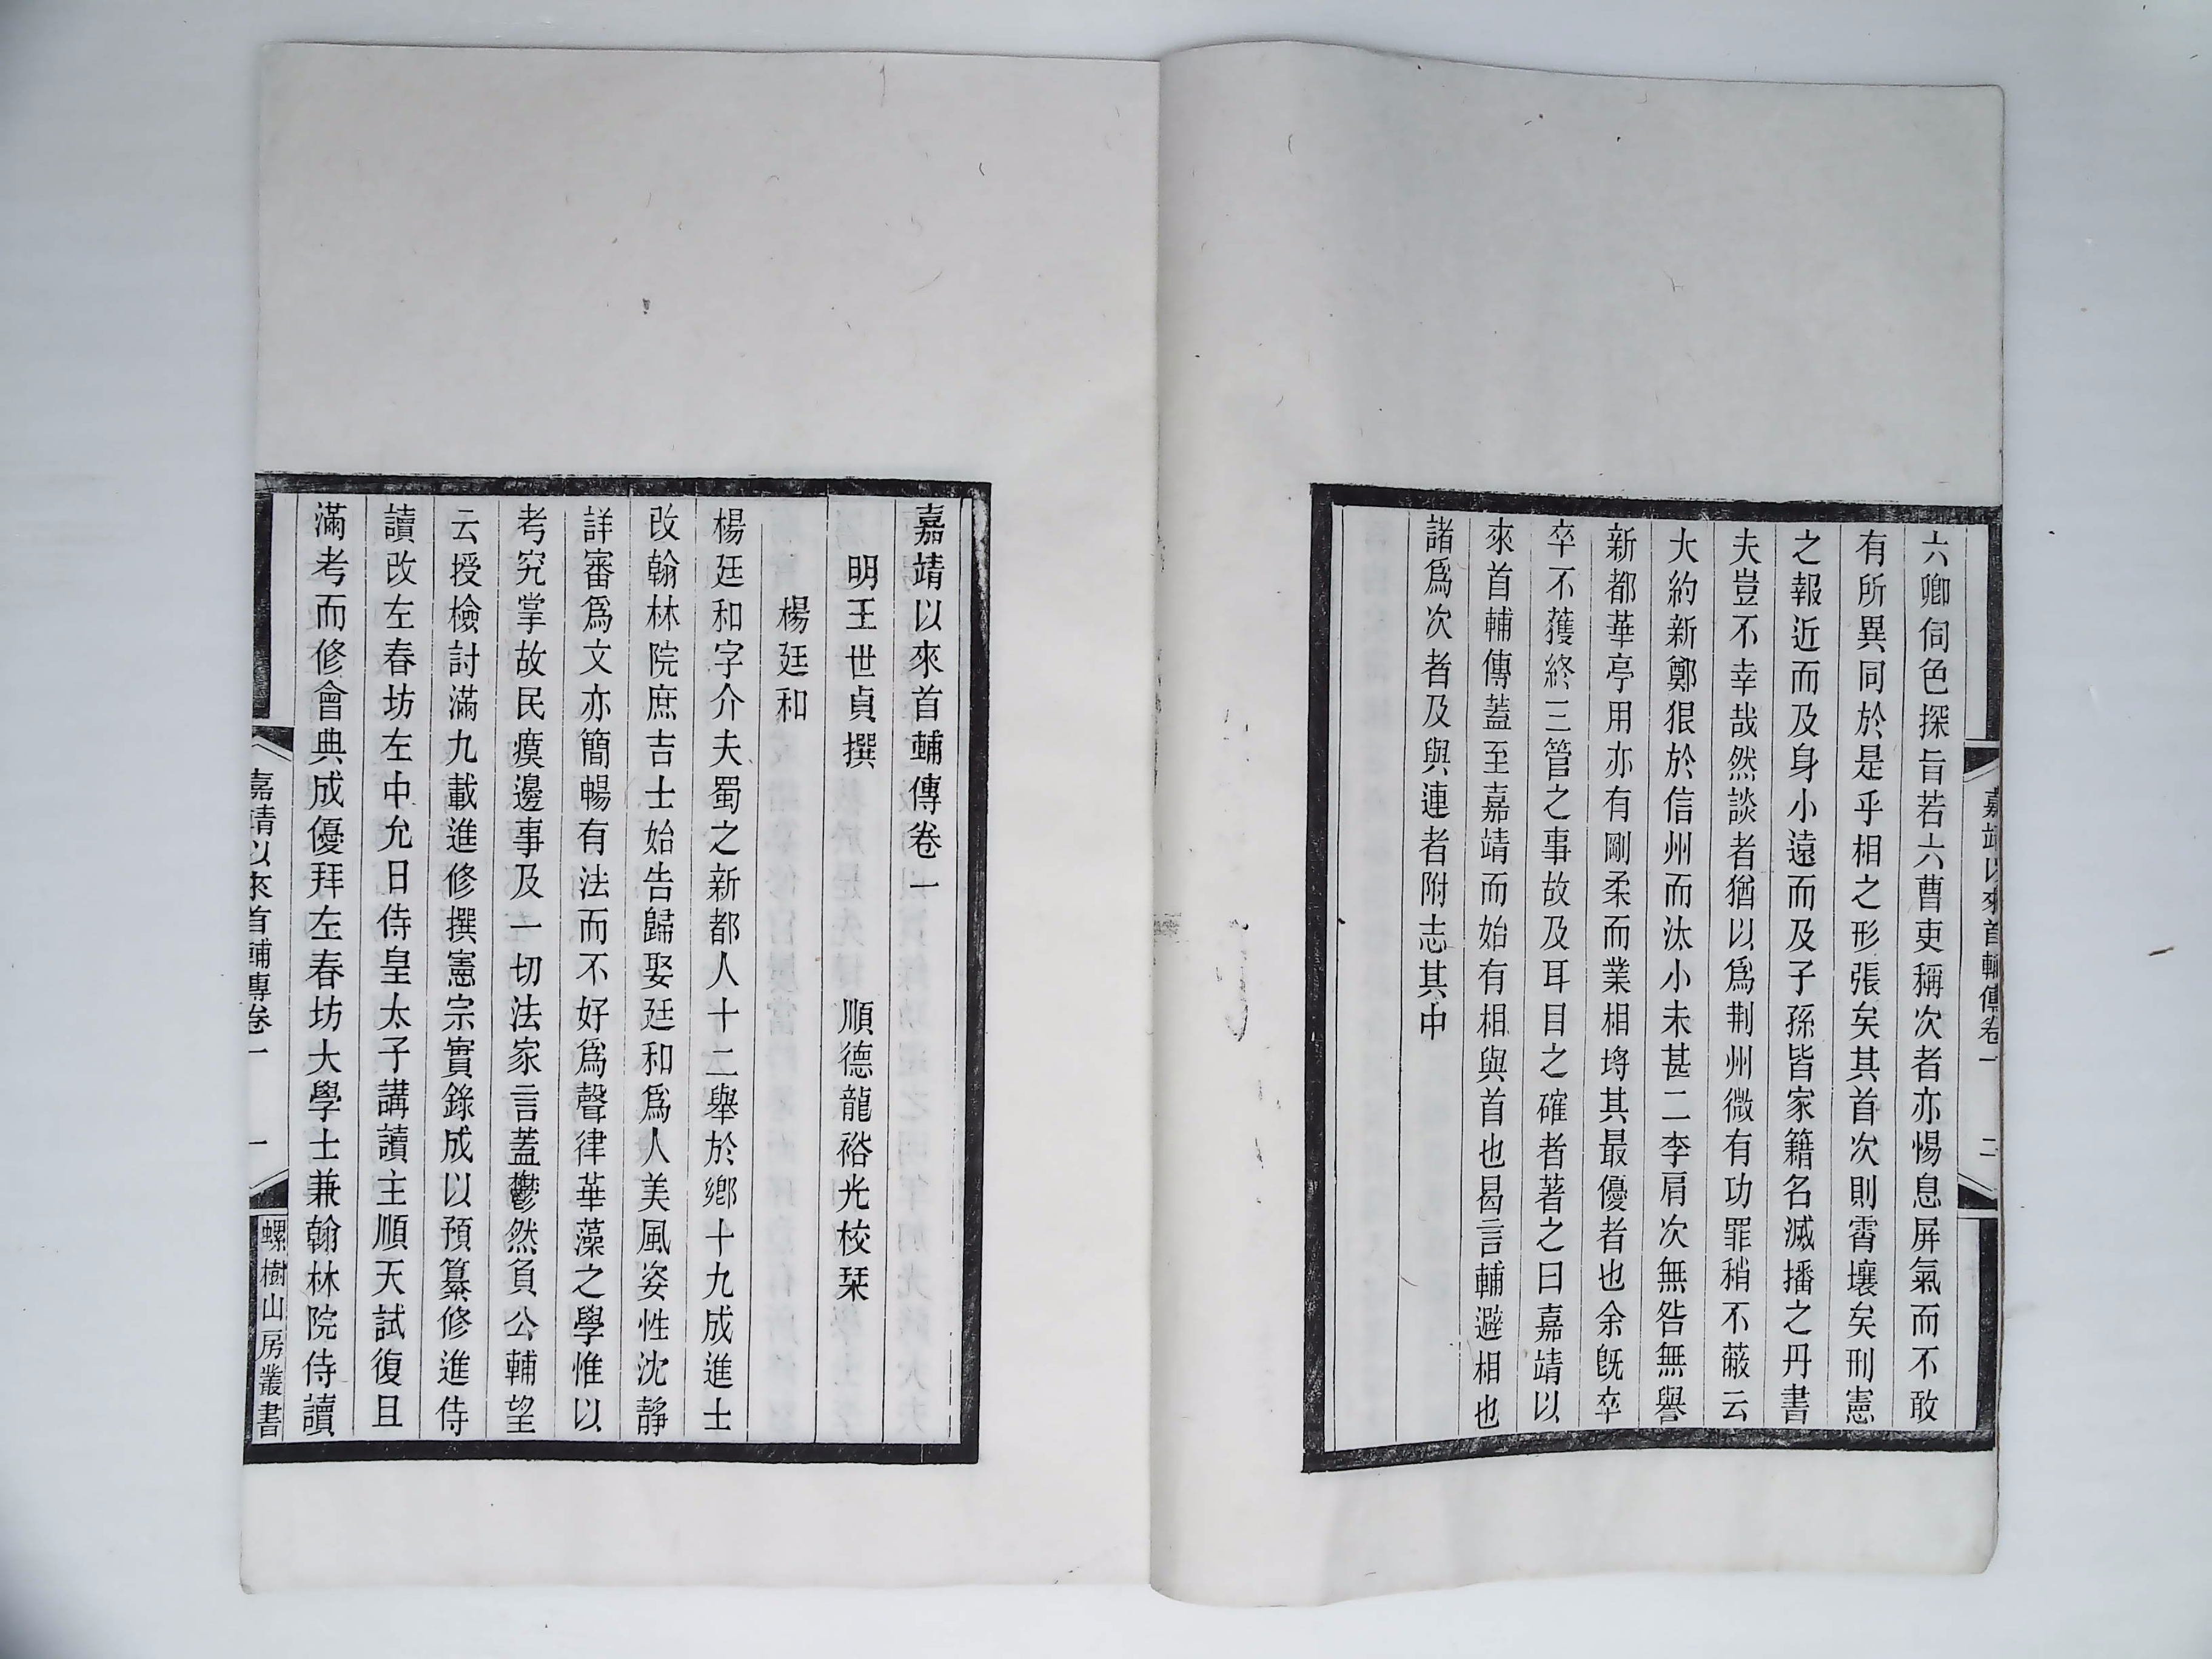 嘉靖以來首輔傳卷一
二
六卿伺色探旨若六曹吏稱次者亦惕息屏氣而不敢
有所異同於是乎相之形張矣其首次則霄壤矣刑憲
之報近而及身小遠而及子孫皆家籍名滅播之丹書
夫豈不幸哉然談者猶以爲荆州微有功罪稍不蔽云
大約新鄭狠於信州而汰小未甚二李肩次無咎無譽
新都華亭用亦有剛柔而業相埒其最優者也余旣卒
卒不獲終三管之事故及耳目之確者著之曰嘉靖以
來首輔傳蓋至嘉靖而始有相與首也曷言輔避相也
諸爲次者及與連者附志其中
嘉靖以來首輔傳卷一
明王世貞撰　順德龍裕光校栞
楊廷和
楊廷和字介夫蜀之新都人十二舉於鄉十九成進士
改翰林院庶吉士始告歸娶廷和爲人美風姿性沈靜
詳審爲文亦簡暢有法而不好爲聲律華藻之學惟以
考究掌故民瘼邊事及一切法家言蓋鬱然負公輔望
云授檢討滿九載進修撰憲宗實錄成以預纂修進侍
讀改左春坊左中允日侍皇太子講讀主順天試復且
滿考而修會典成優拜左春坊大學士兼翰林院侍讀
嘉靖以來首輔傳卷一
一
螺樹山房叢書